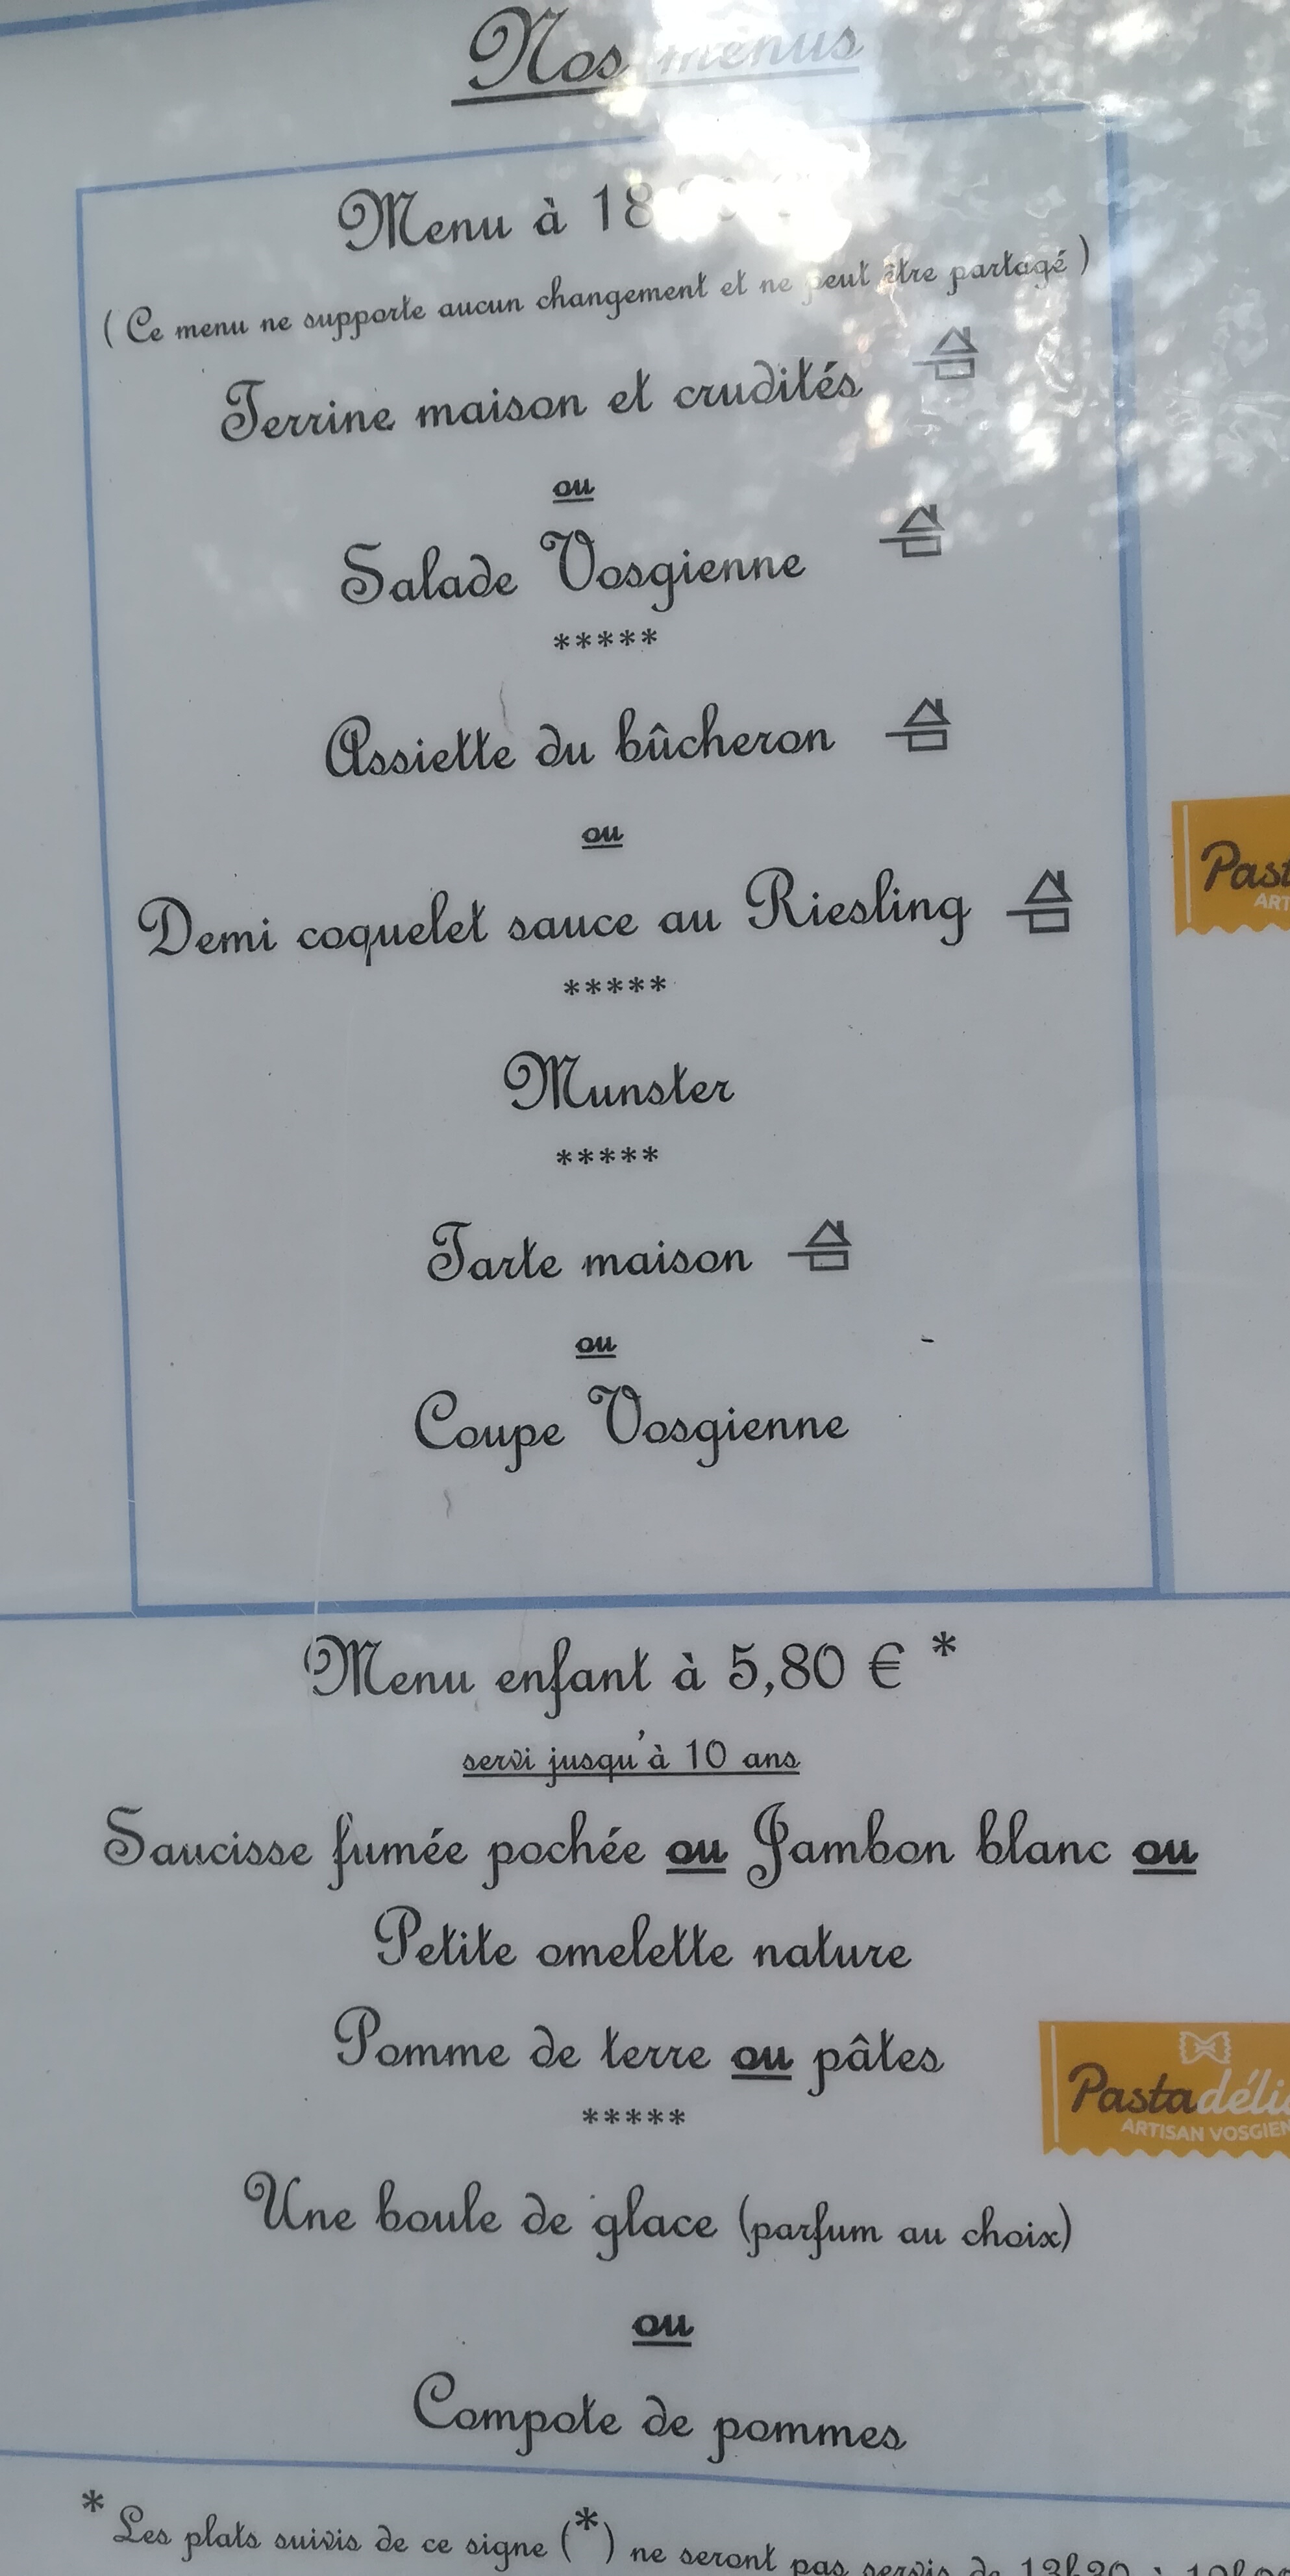 Nos menus
Menu à 18
( Ce menu ne supporte aucun changement et ne peut être partagé )
Terrine maison et crudités
ou
Salade Vosgienne
*****
Assiette du bûcheron
ou
Demi coquelet sauce au Riesling
*****
Munster
*****
Tarte maison
ou
Coupe Vosgienne
Menu enfant à 5,80 € *
servi jusqu'à 10 ans
Saucisse fumée pochée ou Jambon blanc ou
Petite omelette nature
Pomme de terre ou pâtes
Pastadéli
ARTISAN VOSGIEN
*****
Une boule de glace (parfum au choix)
ou
Compote de pommes
* Les plats suivis de ce signe (*) ne seront pas servis de